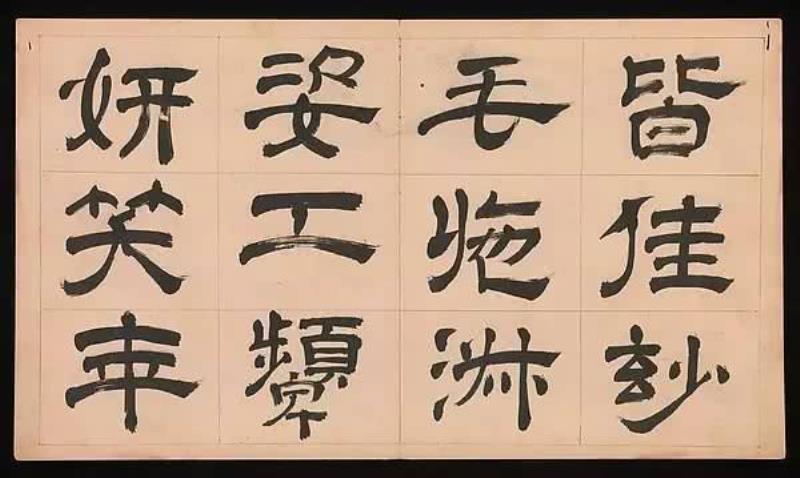 皆佳玅
毛施淑
姿工顰
妍笑年